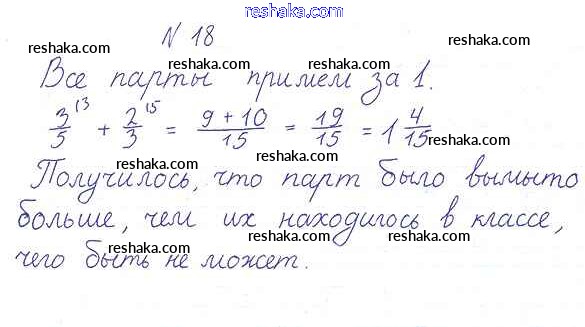 www.reshaka.com
N 18
reshaka.com reshaka.com
Все парты примем за 1.
reshaka.com reshaka.com
3/5 ⁽³ + 2/3 ⁽⁵ = (9 + 10)/15 = 19/15 = 1 4/15
reshaka.com
Получилось, что парт было вымыто
reshaka.com reshaka.com
больше, чем их находилось в классе,
reshaka.com reshaka.com
чего быть не может.
reshaka.com